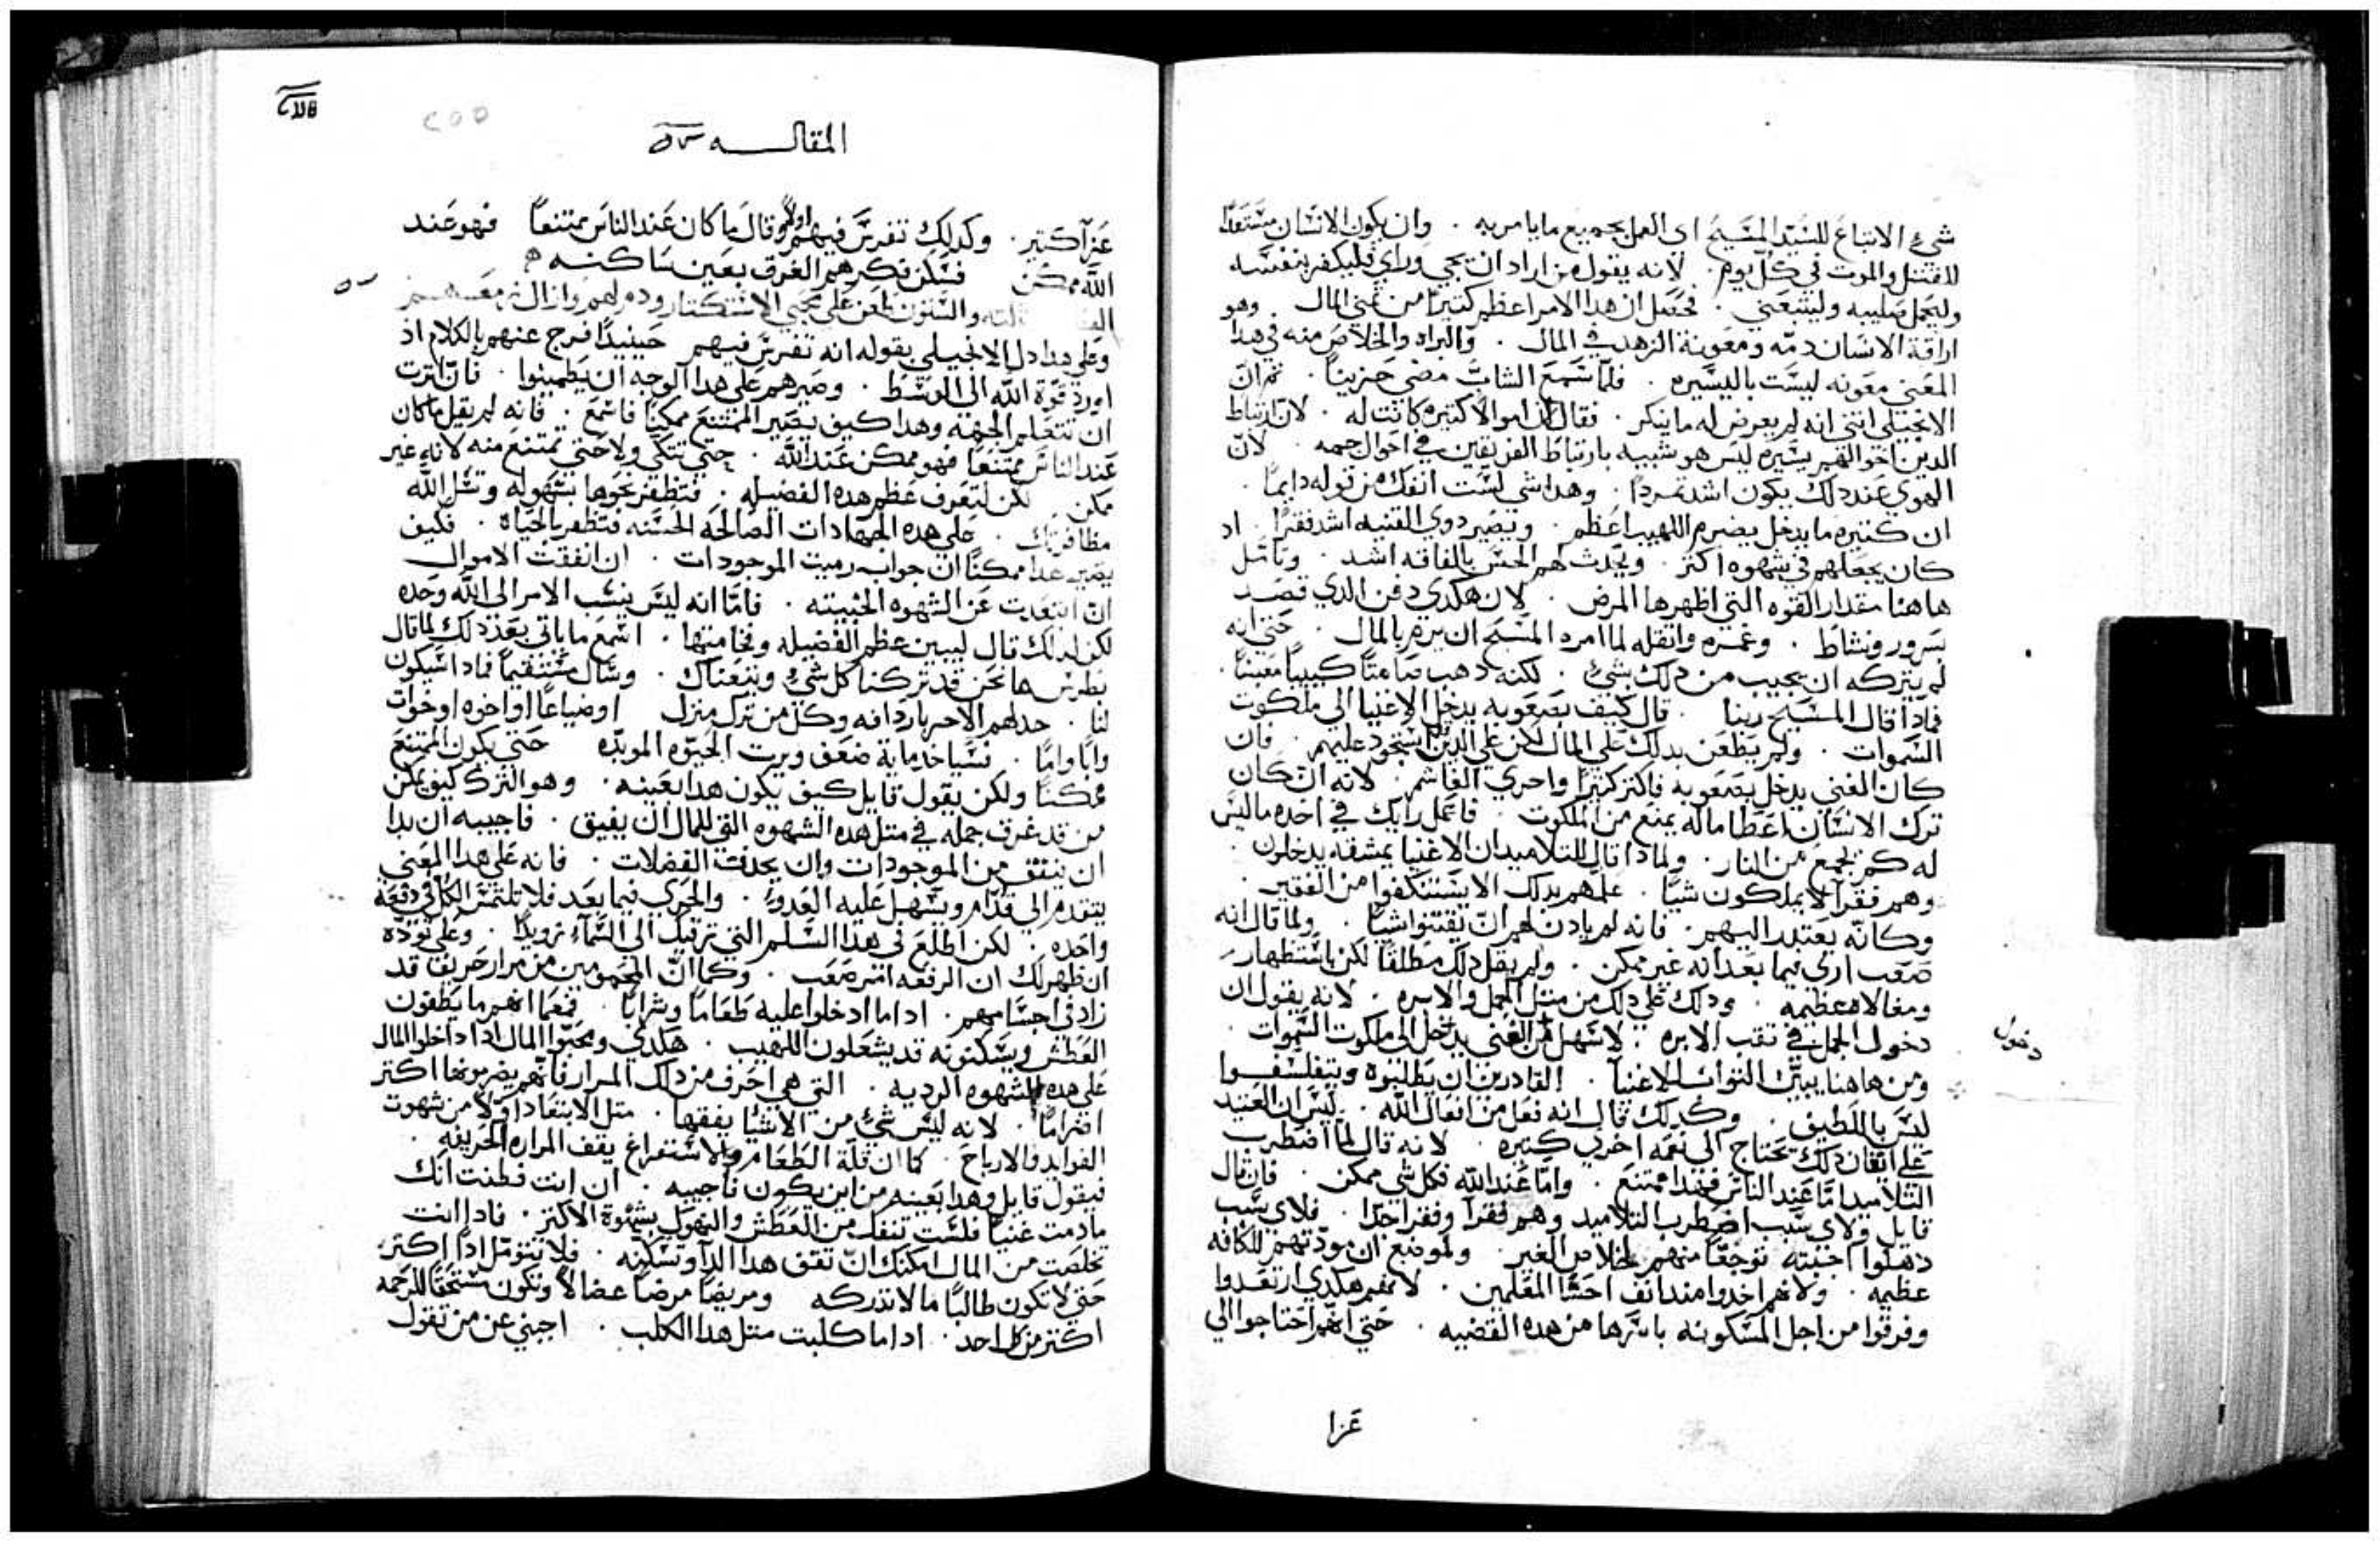 شيءٍ الاتباع للسَيّد المسَيح اي العمل بجميع ما يامر به . وان يكون الانسَان مسَتعدًا
للقتل والموت في كل يوم . لانه يقول من اراد ان يجي وراي فليكفر بنفسَه
وليحمل صَليبه وليتبعَني . فحصَل ان هدا الامر اعظم كتيرًا من المال . وهو
اراقة الانسَان دمّه ومعَونة الزهد في المال . والبراه والخلاصَ منه في هدا
المعَني معَونه ليسَت باليسَيره . فلمّا سَمعَ الشابّ مضي حَزينًا . تم انّ
الانجيلي انتني انه لم يعرض له ما ينكر . فقال ان اموالاً كتيره كانت له . لان ارتباط
الدين اخوالهم يسَيره ليسَ هو شبيه بارتباط الغريقين في اخوال جمه . لانّ
الهوي عَند دلك يكون اشد تمردًا . وهدا شي لسَت انفك من قوله دايمًا .
ان كتيره ما يدخل يضرم اللهيب اعَظم . ويصَير دوي القنيه اشد فقرًا . اد
كان يجعَلهم في شهوه اكتر . ويحَدث لهم الحسّ بالفاقه اشد . وتامّل
هاهنا مقدار القوه التي اظهرها المرض . لان هكدي دفن الدي قصَد
بسَرور ونشاط . وغمره واتقله لما امره المسَيح ان يرم بالمال . حَتي انه
لم يتركه ان يجيب من دلك بشيءٍ . لكنه دهب صَامتًا كييبًا معَبسًا .
فمادا قال المسَيح ربنا . قال كيف بصَعَوبه يدخل الاغنيا الي ملكوت
السَموات . ولم يطعَن بدلك علي المال لكن علي الدين اسَتحود عليهم . فان
كان الغني يدخل بصَعَوبه فاكتر كتيرًا واحري الغاشم . لانه ان كان
ترك الانسَان اعَطا ماله يمنع من الملكوت . فاعمل رايك في اخده ما ليسَ
له كم يجمع من النار . ولمادا قال للتلاميد ان الاغنيا بمشقه يدخلون .
وهم فقرآ لا يملكون شيًا . علمهم بدلك الا يسَتنكفوا من الفقر .
وكانّه يعَتدر اليهم . فانه لم يادن لهم انّ يقتنوا شيًا . ولما قال انه
صَعَب اري فيما بعَد انه غير ممكن . ولم يقل دلك مطلقًا لكن باسَتظهار
ومغالاه عظيمه . ودلك علي دلك من متل الجمل والابره . لانه يقول ان
دخول الجمل في تقب الابره . لاسَهل من الغني يدخل الي ملكوت السَموات .
دخول
ومن هاهنا يبيّن التواب للاغنيا . القادرين ان يطلبوه ويتفلسَفوا
ليسَ باللطيف . وكدلك قال انه فعَل من افعَال الله . ليبيّن ان العَتيد
عَلي اتقان دلك يحَتاج الي نعَمه اخري كتيره . لانه قال لما اضطرب
التلاميد امّا عَند الناس فهدا ممتنعَ . وامّا عَند الله فكل شي ممكن . فان قال
قايل ولاي سَبب اضطرب التلاميد وهم فقرآ وفقرا جدًا . فلاي سَبب
دهلوا اجبته توجّعًا منهم لخلاص الغير . ولموضع ان مودّتهم للكافه
عظيمه . ولانهم اخدوا مند انف احشا المعَلمين . لانهم هكدي ارتعَدوا
وفرقوا من اجل المسَكونه باسَرها من هده القضيه . حَتي انهّم احتاجوا الي
عَزا
المقالـــــه
عَزآ كتير . وكدلك تفرسَّ فيهم اولاً وقال ما كان عَند الناسَ ممتنعاً فهو عَند
الله ممكن فسَكّن فكرهم الغرق بعَين سَاكنه
والسَتون طعن علي محبي الاسَتكتار
وعَلي هدا دل الانجيلي بقوله انه تفرسَّ فيهم حَينيدًا فرج عنهم بالكلام اد
اورد قوّة الله الي الوسَط . وصَيرهم عَلي هدا الوجه ان يَطمينوا . فان اترت
ان تتعَلم الجهه وهدا كيف يصَير الممتنعَ ممكنًا فاسَمع . فانه لم يقل ما كان
عَند الناسَ ممتنعًا فهو ممكن عَند الله . حتي تتكي ولا حَتي تمتنعَ منه لانه غير
مكن لكن لتعَرف عَظم هده الفضيله . فتطفر نحَوها بسَهوله وتسَل الله
مظافرتك . علي هده الجهادات الصَالحَه الحسَنه فتظفر بالحَياة . فكيف
يصَير هدا ممكنًا ان جواب رميت الموجودات . ان انفقت الاموال
ان ابتعَدت عَن الشهوه الخبيته . فامّا انه ليسَ ينسَب الامر الي الله وحَده
لكن لدلك قال ليبين عظم الفضيله وفخامتها . اسَمعَ ما ياتي بعَد دلك لما قال
بطرسَ ها نحَن قد تركنا كل شيءٍ وتبعَناك . وسَال مسَتفهمًا فمادا سَيكون
لنا . حدلهم الاجر باردافه وكل من ترك منزل اوضياعًا او اخوه او اخوات
وابًا وامًا . فسَياخد ماية ضعَف ويرت الحَيوه الموبده حَتي يكون الممتنعَ
ممكنًا ولكن يقول قايل كيف يكون هدا بعَينه . وهو الترك كيف يمكن
من قد غرق جمله في متل هده الشهوه التي للمال ان يفيق . فاجيبه ان بدا
ان ينفق من الموجودات وان يحدف الفضلات . فانه عَلي هدا المعَني
يتقدم الي قدام ويسَهل عَليه العَدو . والجَري فيما بعَد فلا تلتمسَ الكل في دفعَة
واحَده . لكن اطلعَ في هدا السَلم التي ترقيك الي السَمآء رويدًا . وعَلي توده
ان ظهر لك ان الرفعه امر صَعَب . وكما انّ المحَمومين من مرار حَريف قد
زاد في احسَامهم . ادا ما ادخلوا عليه طعَامًا وشرابًا . فمعَما انهم ما يَطفون
العَطش ويسَكنونه قد يشعَلون اللهيب . هكدي ومحبّوا المال ادا داخلوا المال
عَلي هده الشهوه الرديه . التي هي احَرف من دلك المرار فانهم يضرمونها اكتر
اضرامًا . لانه ليسَ شيءٌ من الاشيا يفقها . متل الابتعَاد اولاً من شهوت
الفوايد والارباح . كما ان قلّة الطعَام والاسَتفراغ يقف المراره الحَريفه .
فيقول قايل وهدا بَعينه من اين يكون فاجيبه . ان انت فطنت انك
مادمت غنيًا فلسَت تنفك من العَطش والدهول بشهوة الاكتر . فادا انت
تخلصَت من المال امكنك انّ تقف هدا الدآ وتسَكنه . فلا تتومّل ادا اكتر
حَتي لا تكون طالبًا ما لا تدركه ومريضًا مرضًا عضالاً وتكون مسَتحَقًا للرحَمه
اكتر من كل احد . ادا ما كلبت متل هدا الكلب . اجبني عن من تقول